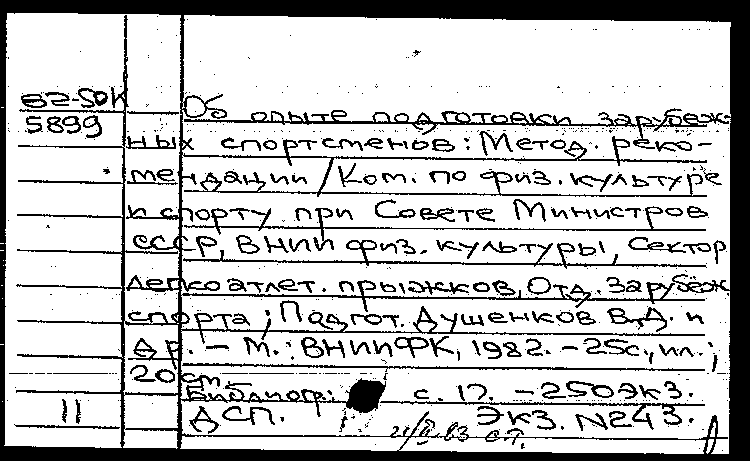 62-50к
5899
Об опыте подготовки зарубеж-
ных спортсменов: Метод. реко-
мендации / Ком. по физ. культуре
и спорту при Совете Министров
СССР, ВНИИ физ. культуры, Сектор
легкоатлет. прыжков, Отд. зарубеж
спорта; Подгот. Душенков В.Д. и
др. - М.: ВНИИФК, 1982. - 25с., ил.;
20 см.
Библиогр: с. 17. - 250 экз.
11
ДСП. Экз. N243.
83 с.т.